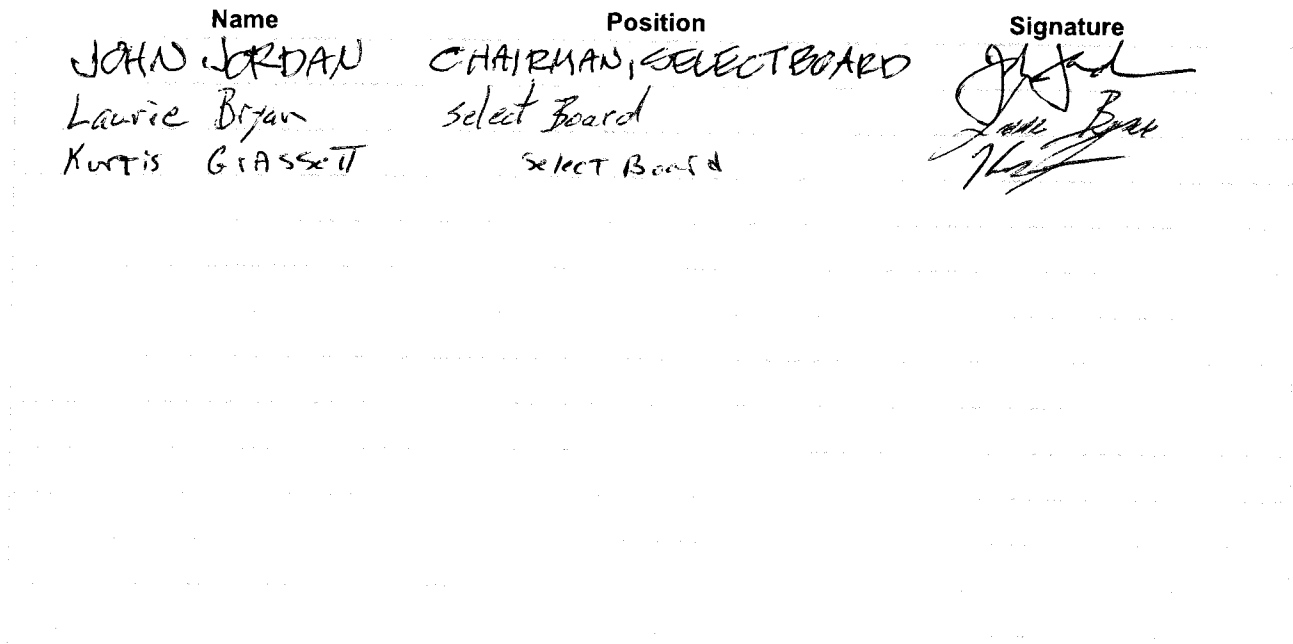 Name Position Signature
JOHN JORDAN CHAIRMAN, SELECTBOARD
Laurie Bryan Select Board
Kurtis GrASSeTT Select Board